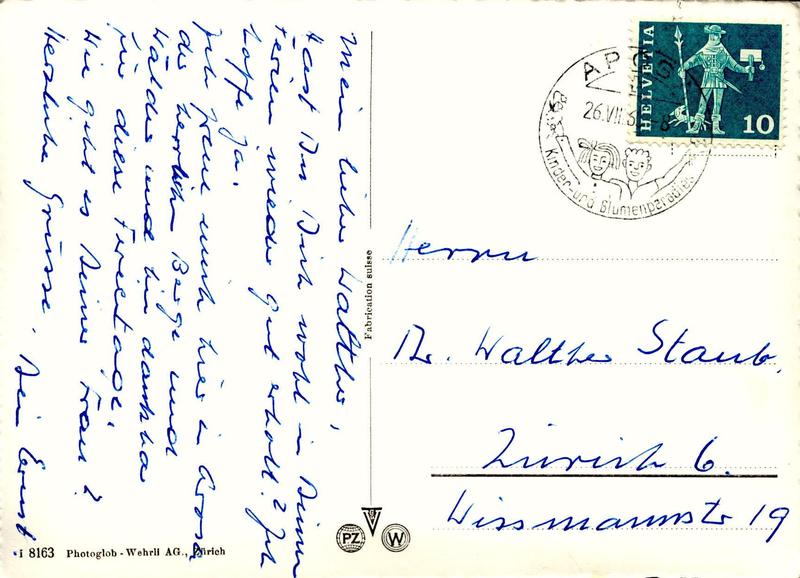 Mein lieber Walther,
Hast Du Dich wohl in Deinen
Ferien wieder gut erholt? Ich
hoffe ja.
Ich freue mich hier in Arosa
der herrlichen Berge und
Wälder und bin dankbar
für diese Ferientage.
Wie geht es Deiner Frau?
Herzliche Grüsse. Dein Ernst.
i 8163 Photoglob - Wehrli AG., Zürich
Fabrication suisse
PZ
W
HELVETIA
10
26.VII.6
Kinder- und Blumenparadies
Herrn
Dr. Walther Staub.
Zürich 6.
Wissmannstr 19